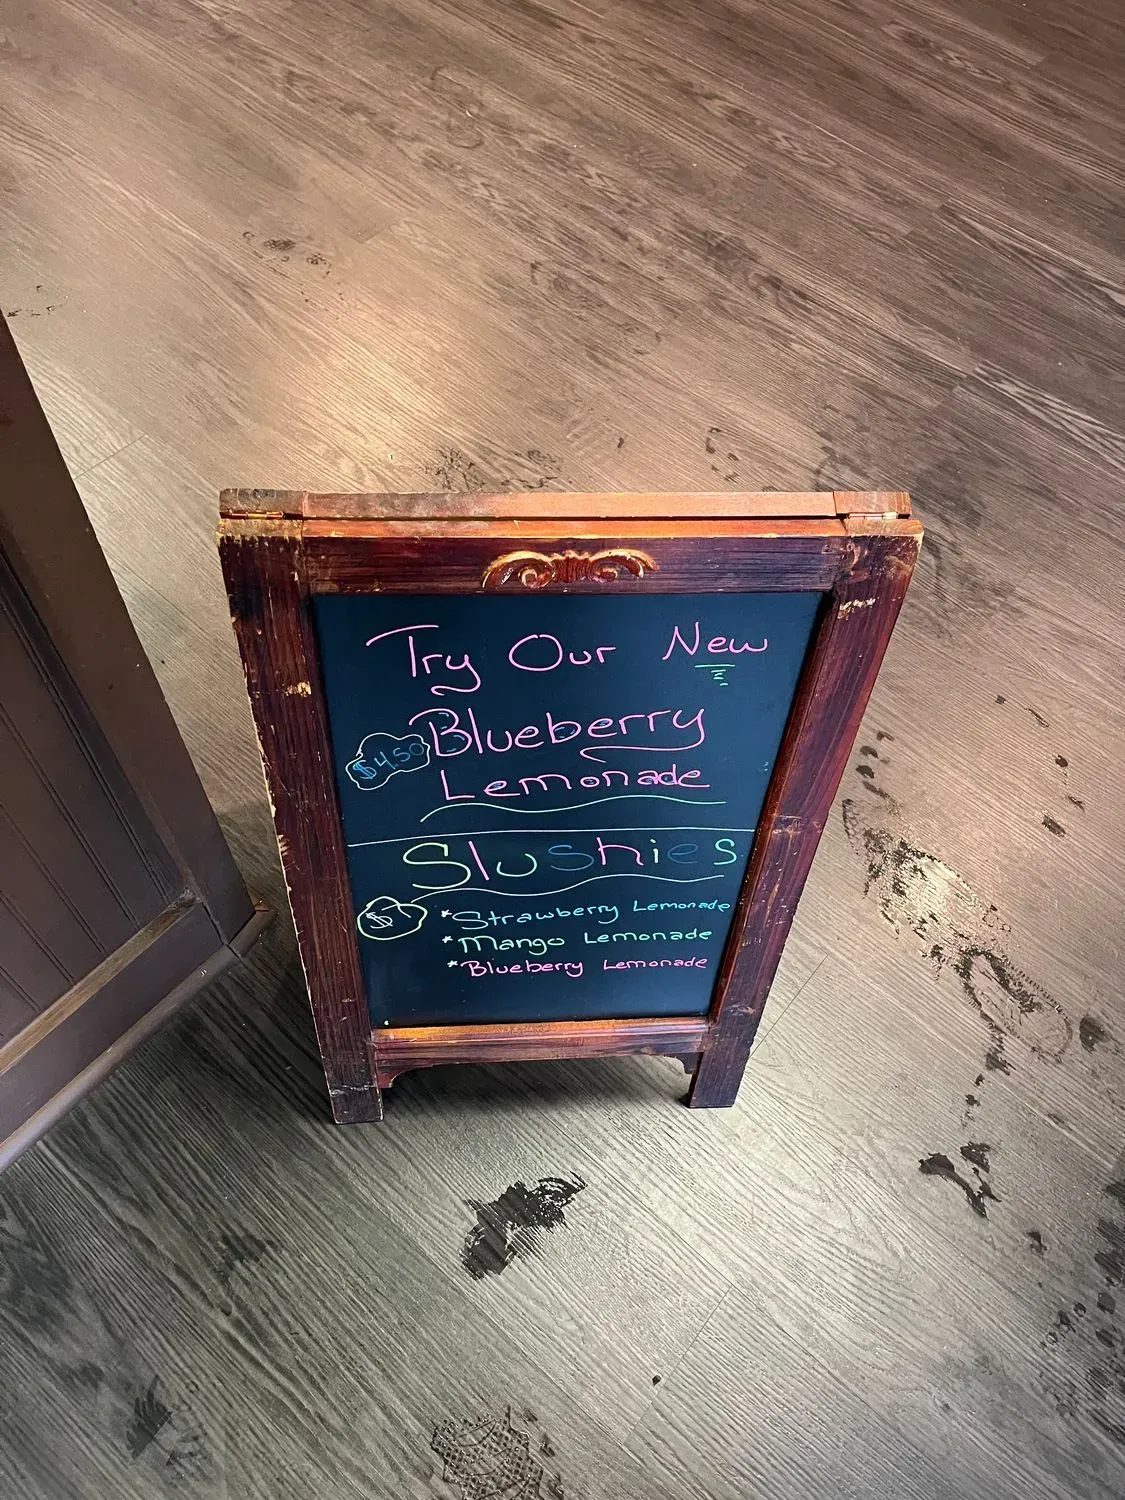 Try Our New
$4.50 Blueberry
Lemonade
Slushies
*Strawberry Lemonade
*Mango Lemonade
*Blueberry Lemonade